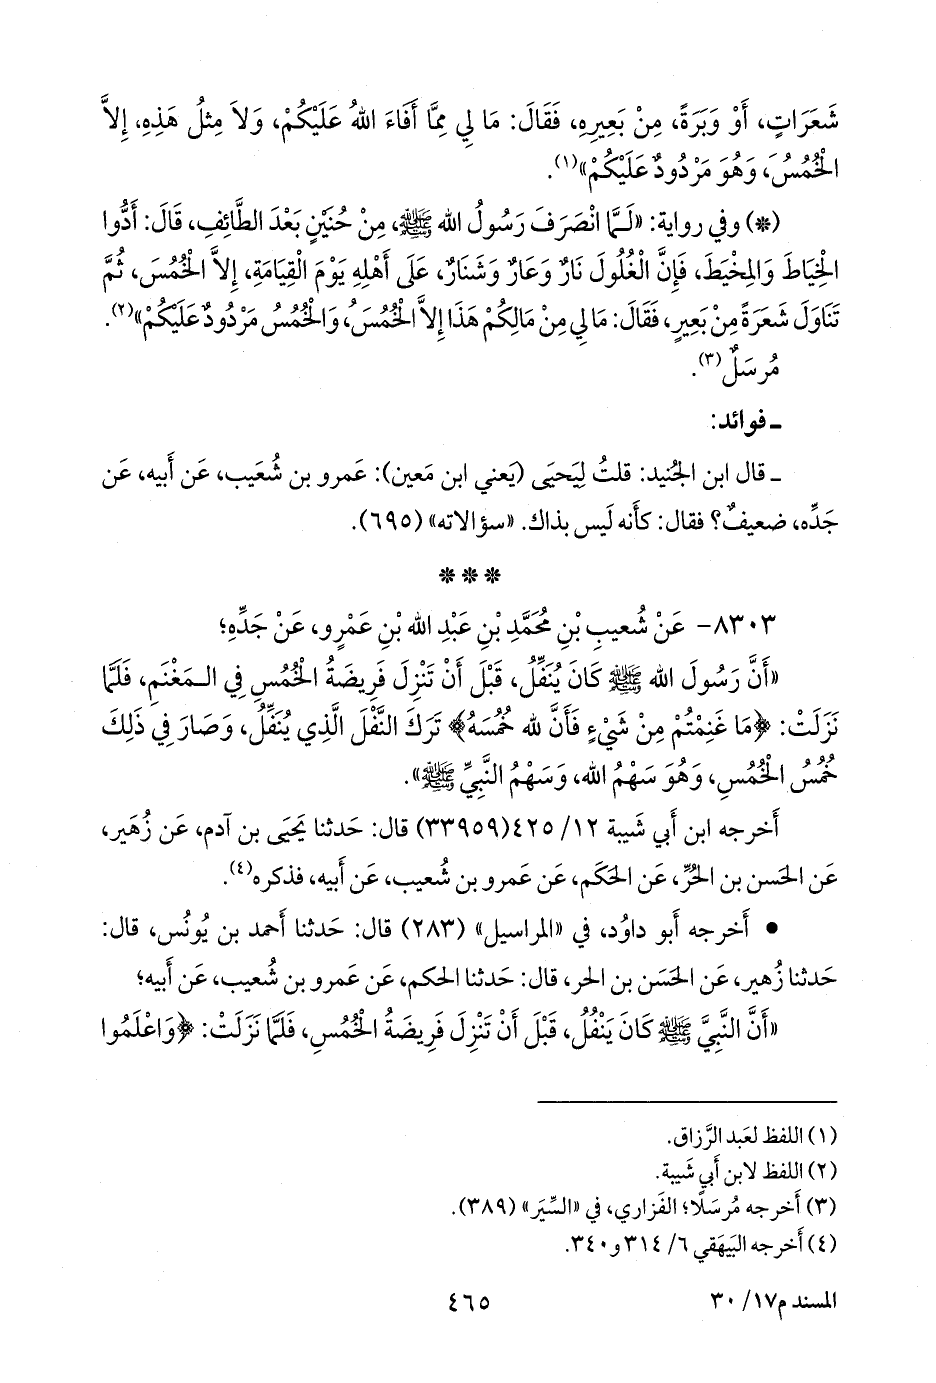 شَعَرَاتٍ، أَوْ وَبَرَةً، مِنْ بَعِيرِهِ، فَقَالَ: مَا لِي مِمَّا أَفَاءَ اللهُ عَلَيْكُمْ، وَلاَ مِثْلُ هَذِهِ، إِلاَّ
الْخُمُسُ، وَهُوَ مَرْدُودٌ عَلَيْكُمْ»(١).
(*) وفي رواية: «لَـمَّا انْصَرَفَ رَسُولُ الله ﷺ، مِنْ حُنَيْنٍ بَعْدَ الطَّائِفِ، قَالَ: أَدُّوا
الْخِيَاطَ وَالمِخْيَطَ، فَإِنَّ الْغُلُولَ نَارٌ وَعَارٌ وَشَنَارٌ، عَلَى أَهْلِهِ يَوْمَ الْقِيَامَةِ، إِلاَّ الْخُمُسَ، ثُمَّ
تَنَاوَلَ شَعَرَةً مِنْ بَعِيرٍ، فَقَالَ: مَا لِي مِنْ مَالِكُمْ هَذَا إِلاَّ الْخُمُسَ، وَالْخُمُسُ مَرْدُودٌ عَلَيْكُمْ»(٢).
مُرسَلٌ(٣).
ـ فوائد:
ـ قال ابن الجُنيد: قلتُ لِيَحيَى (يَعني ابن مَعين): عَمرو بن شُعَيب، عَن أَبيه، عَن
جَدِّه، ضعيفٌ؟ فقال: كأَنه لَيس بذاك. «سؤالاته» (٦٩٥).
* * *
٨٣٠٣- عَنْ شُعيبِ بْنِ مُحَمَّدِ بْنِ عَبْدِ الله بْنِ عَمْرٍو، عَنْ جَدِّهِ؛
«أَنَّ رَسُولَ الله ﷺ كَانَ يُنَفِّلُ، قَبْلَ أَنْ تَنْزِلَ فَرِيضَةُ الْخُمُسِ فِي الـمَغْنَمِ، فَلَمَّا
نَزَلَتْ: ﴿مَا غَنِمْتُمْ مِنْ شَيْءٍ فَأَنَّ لله خُمُسَهُ﴾ تَرَكَ النَّفْلَ الَّذِي يُنَفِّلُ، وَصَارَ فِي ذَلِكَ
خُمُسُ الْخُمُسِ، وَهُوَ سَهْمُ الله، وَسَهْمُ النَّبِيِّ ﷺ».
أَخرجه ابن أَبي شَيبة ١٢/ ٤٢٥(٣٣٩٥٩) قال: حَدثنا يَحيَى بن آدم، عَن زُهَير،
عَن الحَسن بن الحُرِّ، عَن الحَكَم، عَن عَمرو بن شُعيب، عَن أَبيه، فذكره(٤).
• أَخرجه أَبو داوُد، في «المراسيل» (٢٨٣) قال: حَدثنا أَحمد بن يُونُس، قال:
حَدثنا زُهير، عَن الحَسَن بن الحر، قال: حَدثنا الحكم، عَن عَمرو بن شُعيب، عَن أَبيه؛
«أَنَّ النَّبِيَّ ﷺ كَانَ يَنْفُلُ، قَبْلَ أَنْ تَنْزِلَ فَرِيضَةُ الْخُمُسِ، فَلَمَّا نَزَلَتْ: ﴿وَاعْلَمُوا
(١) اللفظ لعَبد الرَّزاق.
(٢) اللفظ لابن أَبي شَيبة.
(٣) أَخرجه مُرسَلًا؛ الفَزاري، في «السِّيَر» (٣٨٩).
(٤) أَخرجه البَيهَقي ٦/ ٣١٤ و٣٤٠.
المسند م١٧/ ٣٠
٤٦٥